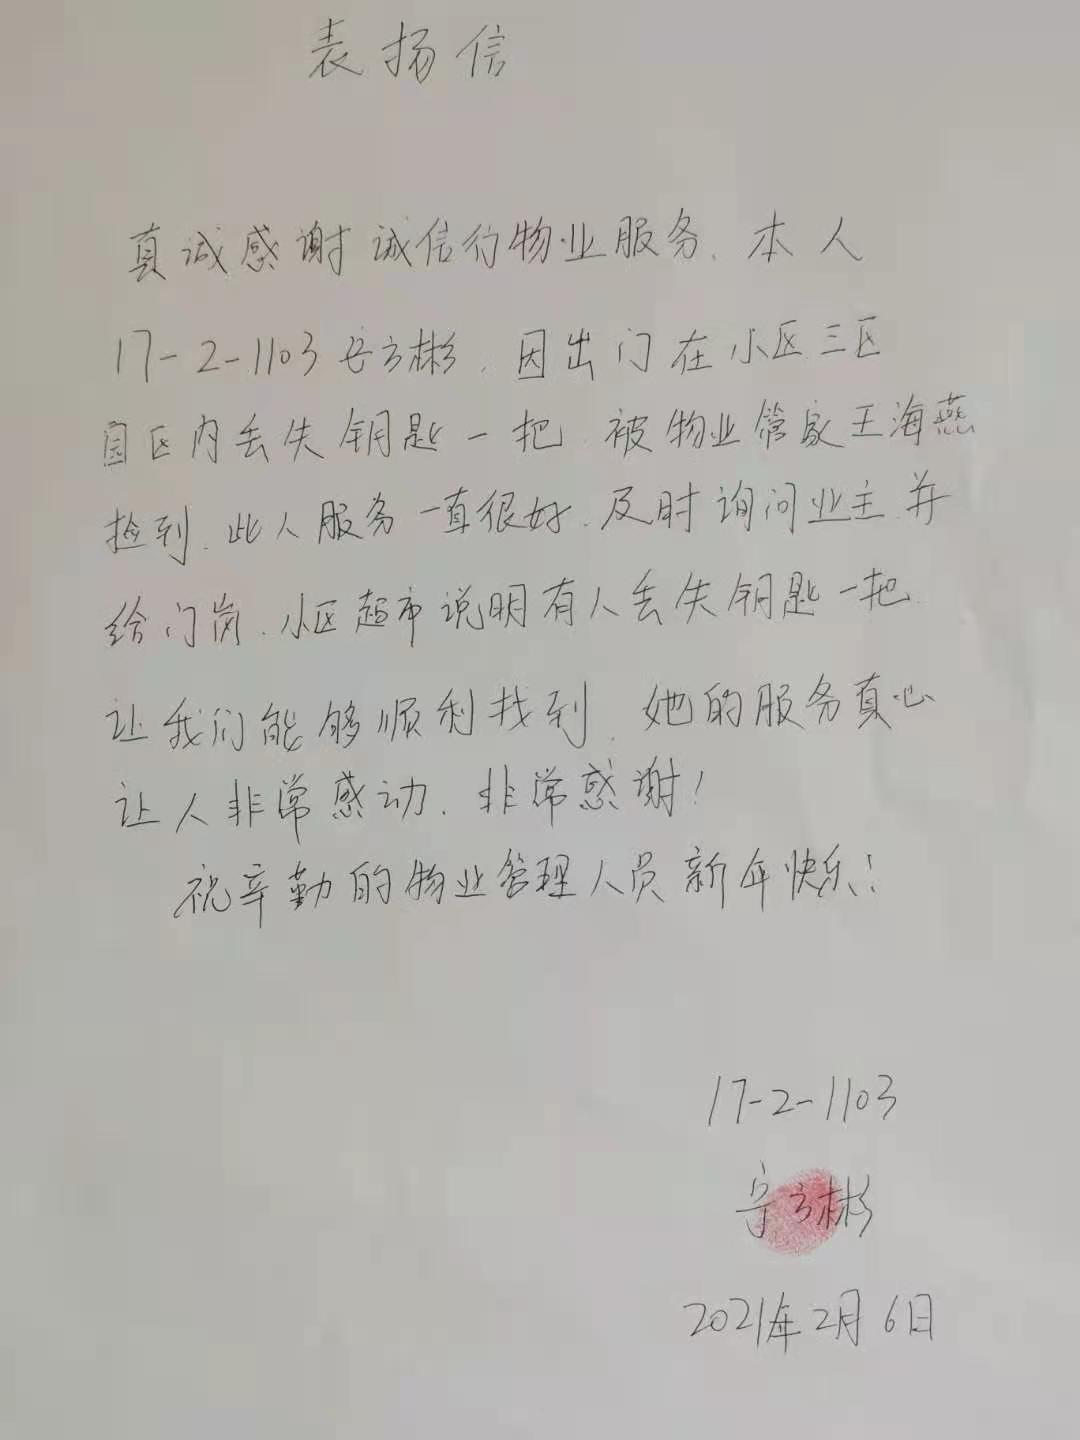 表扬信
真诚感谢诚信行物业服务、本人
17-2-1103 宁方彬、因出门在小区三区
园区内丢失钥匙一把、被物业管家王海燕
捡到、此人服务一直很好、及时询问业主并
给门岗、小区超市说明有人丢失钥匙一把、
让我们能够顺利找到、她的服务真心
让人非常感动、非常感谢！
祝辛勤的物业管理人员新年快乐！
17-2-1103
宁方彬
2021年2月6日